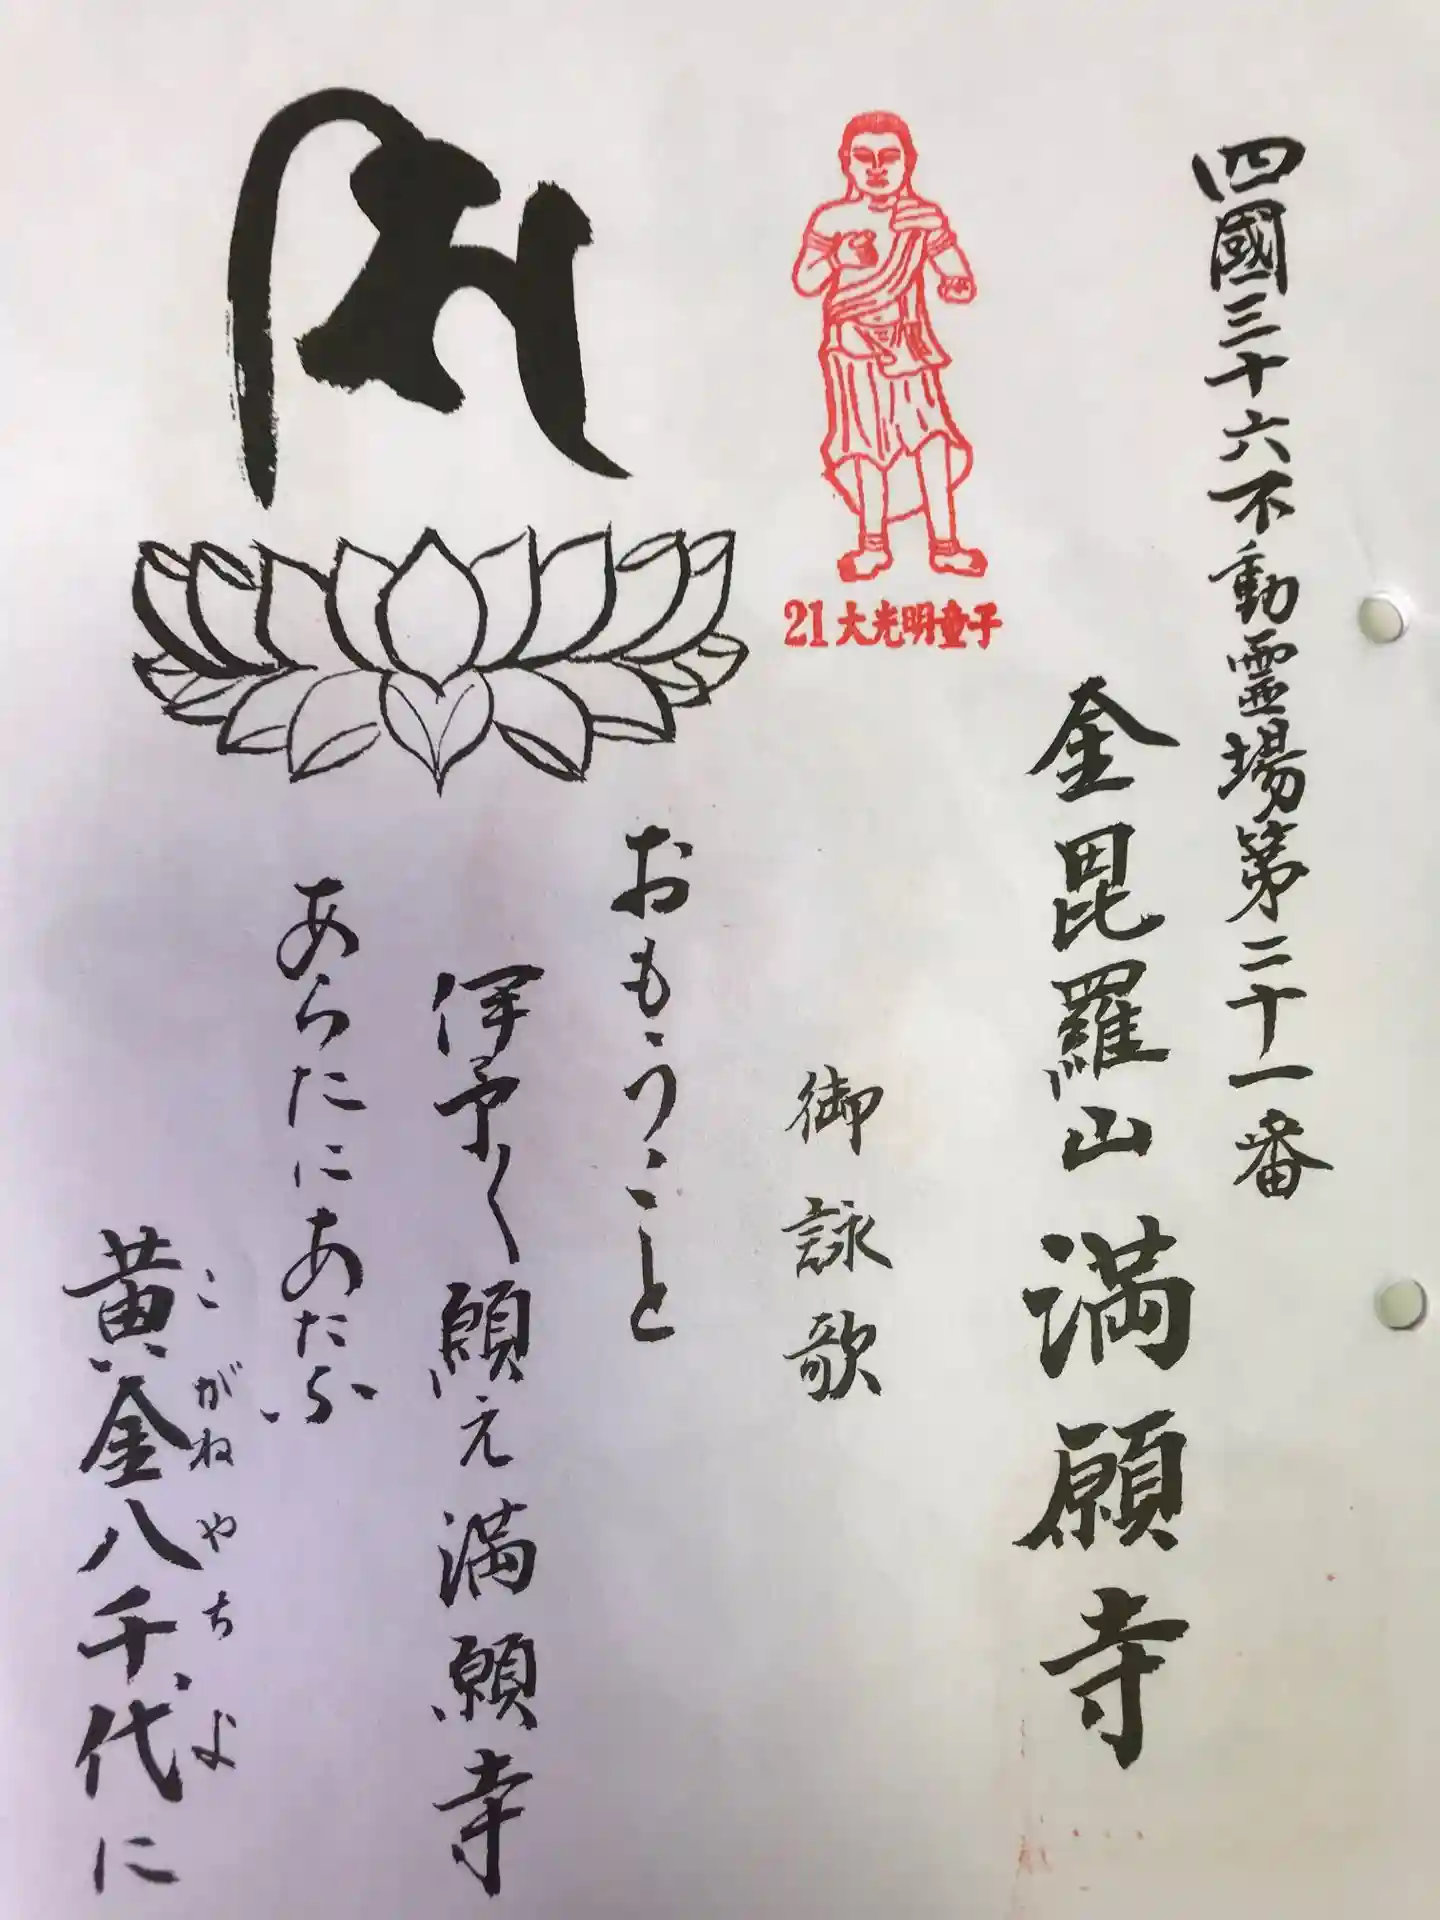 四國三十六不動霊場第二十一番
金毘羅山満願寺
21大光明童子
御詠歌
おもうこと
伊予く願え満願寺
あらたにあたふ
黄金八千代に
こがねやちよ